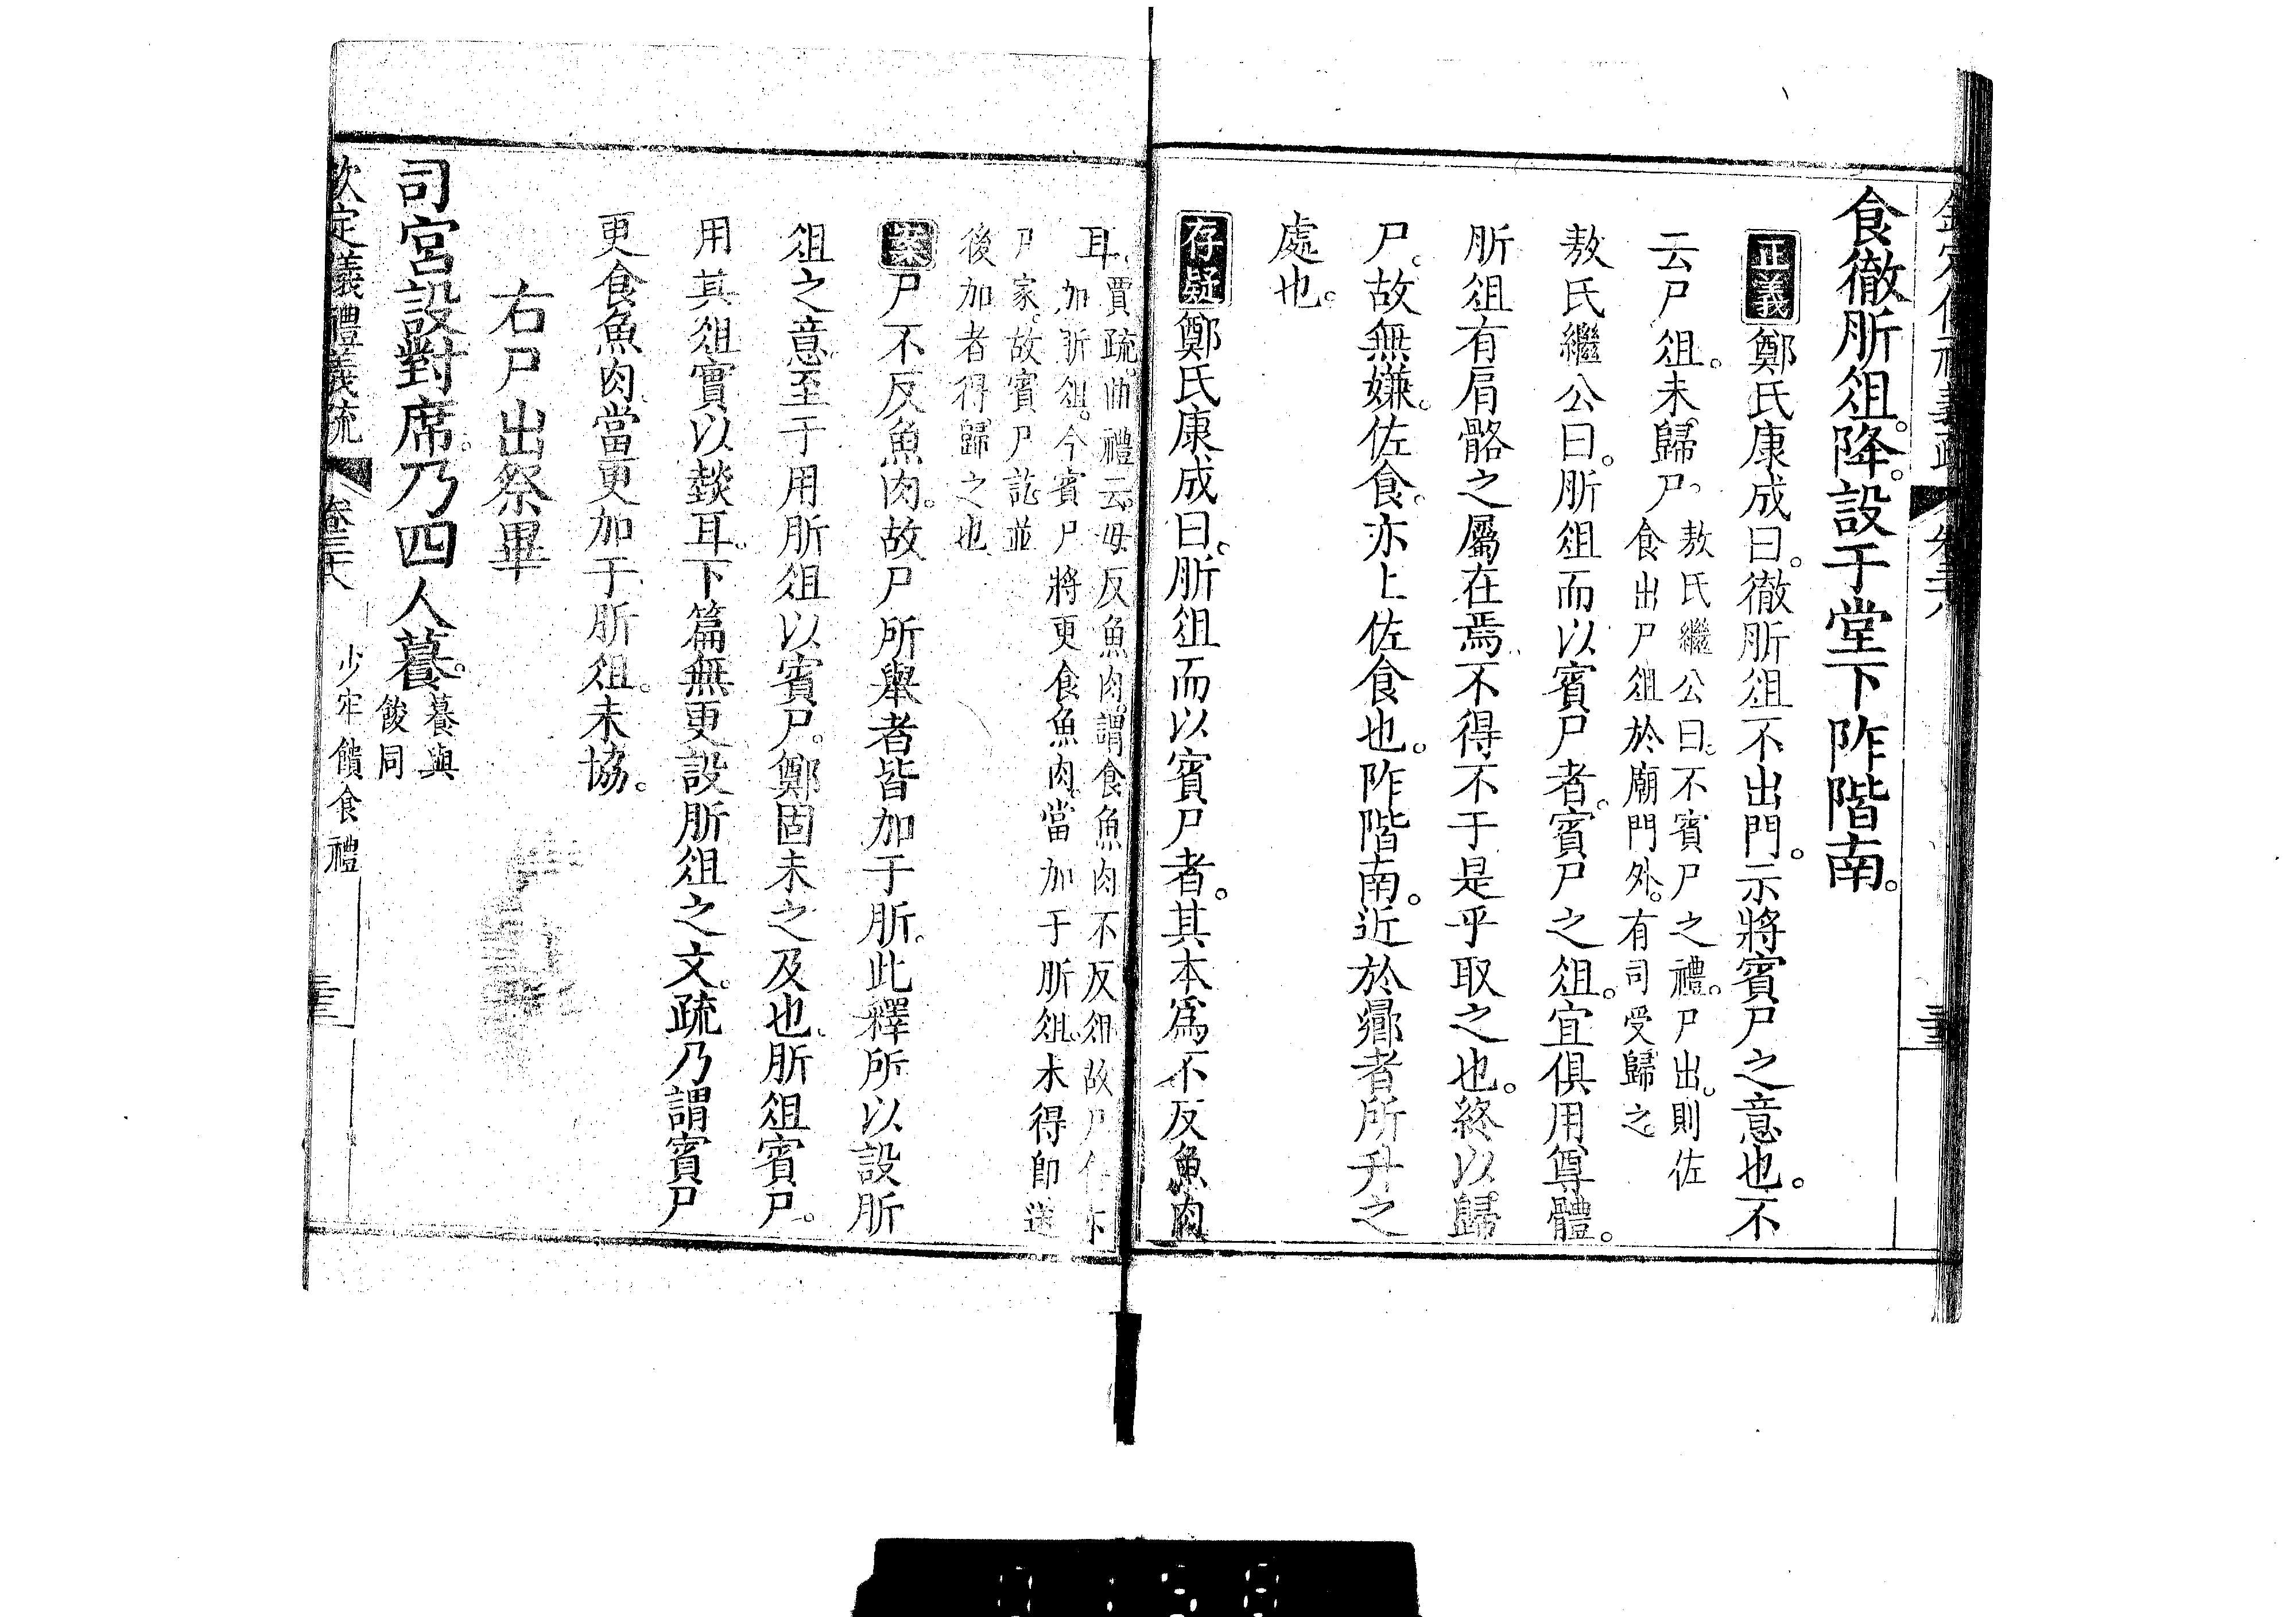 食徹肵俎。降。設于堂下阼階南。
正義鄭氏康成曰。徹肵俎不出門。示將賓尸之意也。不
云尸俎。未歸尸。敖氏繼公曰。不賓尸之禮。尸出。則佐
食出尸俎於廟門外。有司受歸之。
敖氏繼公曰。肵俎而以賓尸者。賓尸之俎。宜俱用尊體。
肵俎有肩骼之屬在焉。不得不于是乎取之也。終以歸
尸。故無嫌。佐食。亦上佐食也。阼階南。近於曏者所升之
處也。
存疑鄭氏康成曰。肵俎而以賓尸者。其本爲不反魚肉
耳。賈疏。曲禮云。毋反魚肉。謂食魚肉不反俎。故尸
加肵俎。今賓尸將更食魚肉。當加于肵俎。未得即送
尸家。故賓尸訖。並
後加者得歸之也
案尸不反魚肉。故尸所舉者皆加于肵。此釋所以設肵
俎之意。至于用肵俎以賓尸。鄭固未之及也。肵俎賓尸。
用其俎實以燅耳。下篇無更設肵俎之文。疏乃謂賓尸
更食魚肉。當更加于肵俎。未協。
右尸出祭畢
司宮設對席。乃四人䬸。䬸與
餕同
欽定儀禮義疏 卷三十八 少牢饋食禮 三三